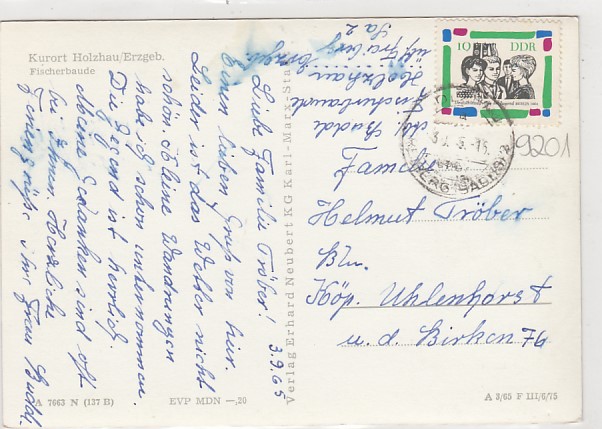 Kurort Holzhau/Erzgeb.
Fischerbaude
3.9.65
Liebe Familie Tröber!
Einen lieben Gruß von hier.
Leider ist das Wetter nicht
schön. Kleine Wandrungen
habe ich schon unternommen.
Die Gegend ist herrlich.
Meine Gedanken sind oft
bei Ihnen. Herzliche
Feriengrüße Ihre Frau Budd
A 7663 N (137 B)
EVP MDN —,20
Verlag Erhard Neubert KG Karl-Marx-Sta
Budde
Fischerbaude
Holzhau Erzgeb.
über Freiberg
Sa 2
10
DDR
9201
Familie
Helmut Tröber
Bln.
Köp. Uhlenhorst
u. d. Birken 76
A 3/65 F III/6/75